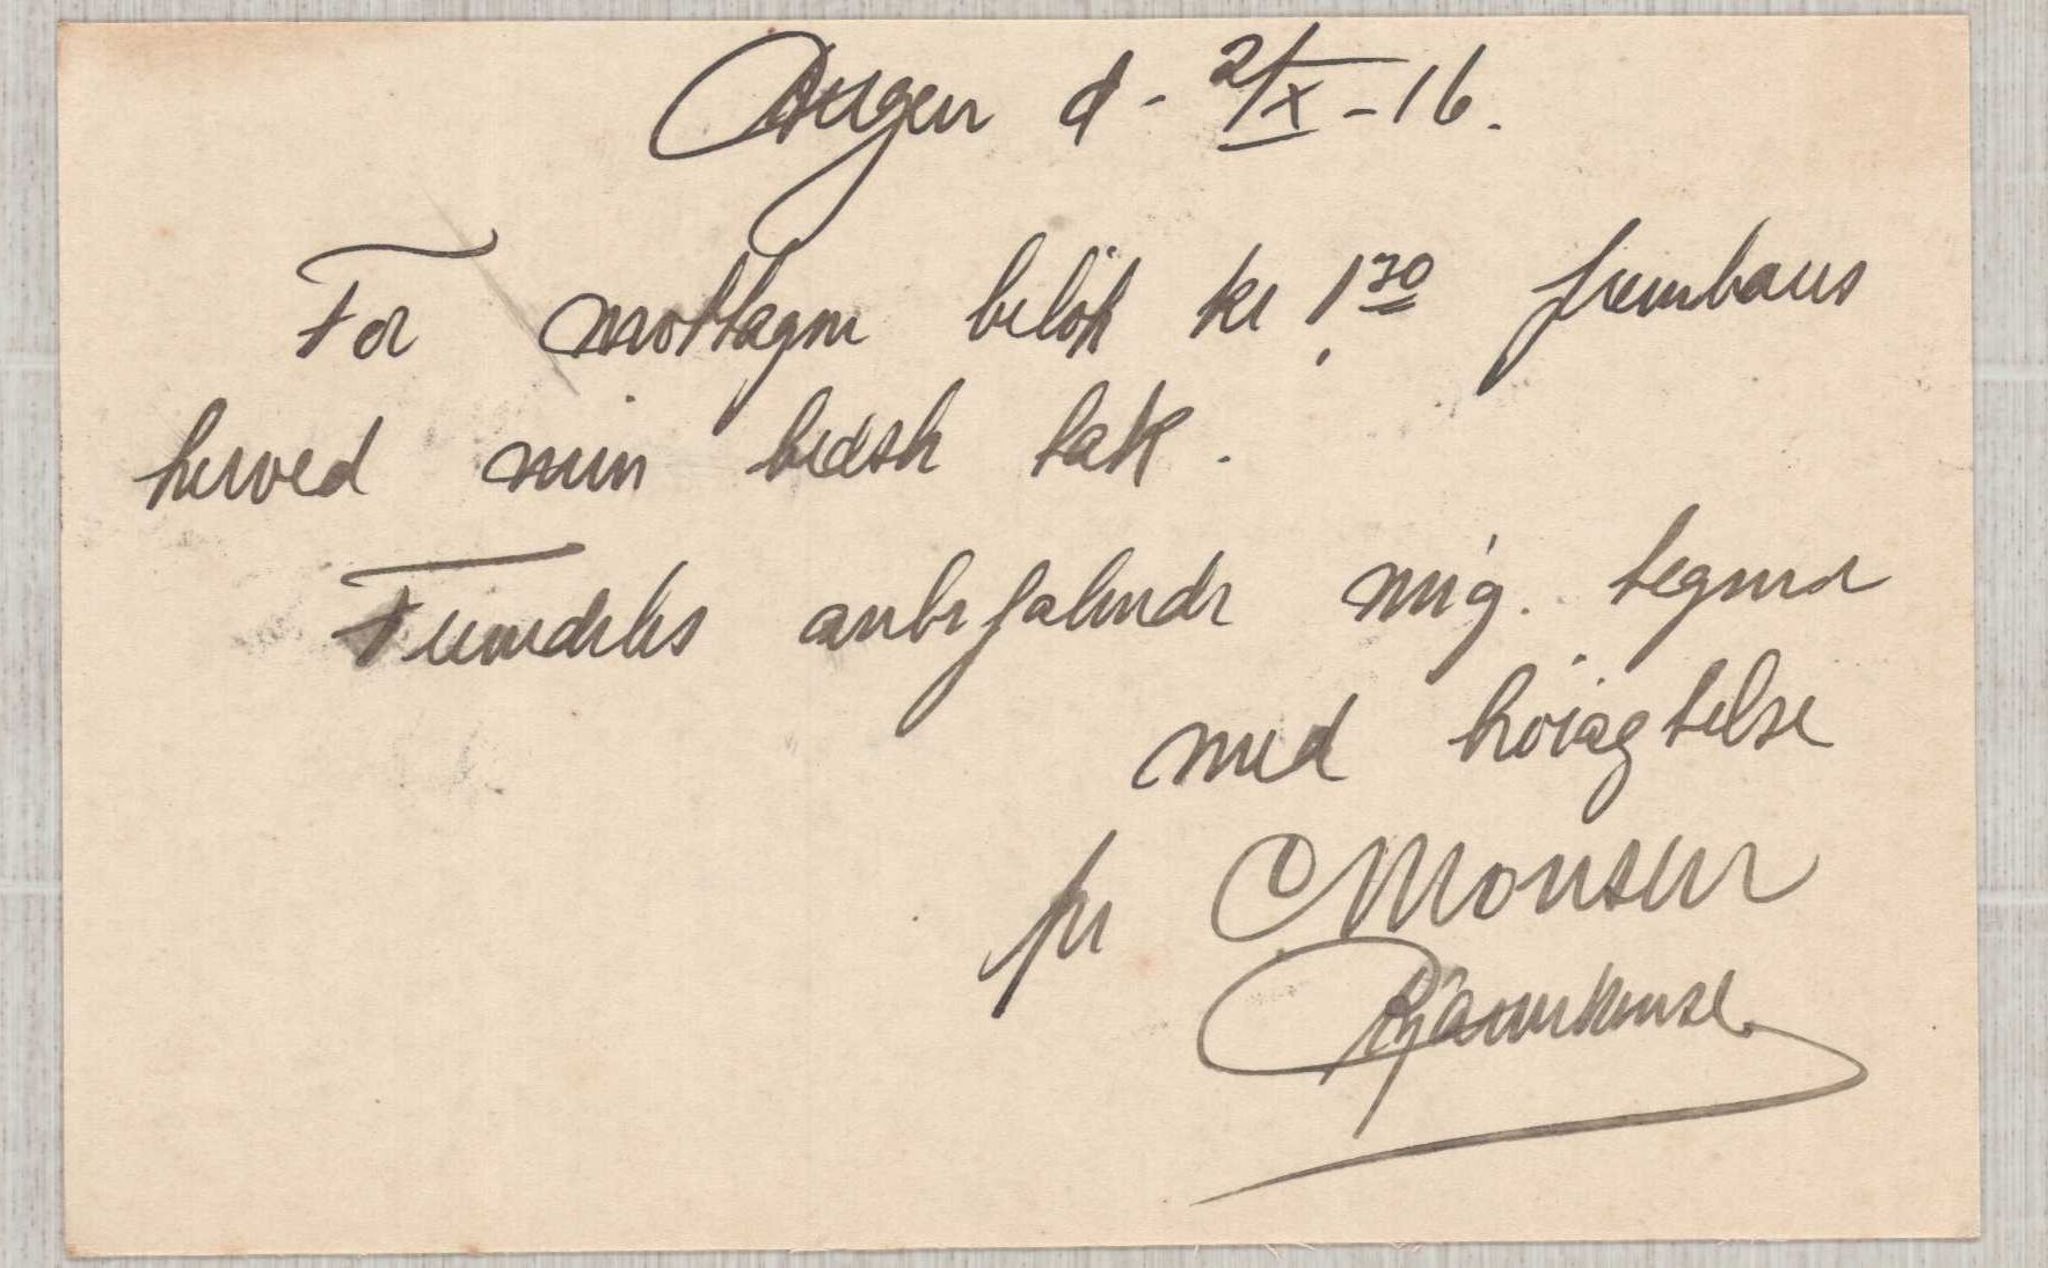 d - 2/X - 16.
For mottagne beløp kr 1,30 frembæres
herved min bedste tak.
Fremdeles anbefalende mig. tegner
med høiagtelse
pr C Monsen